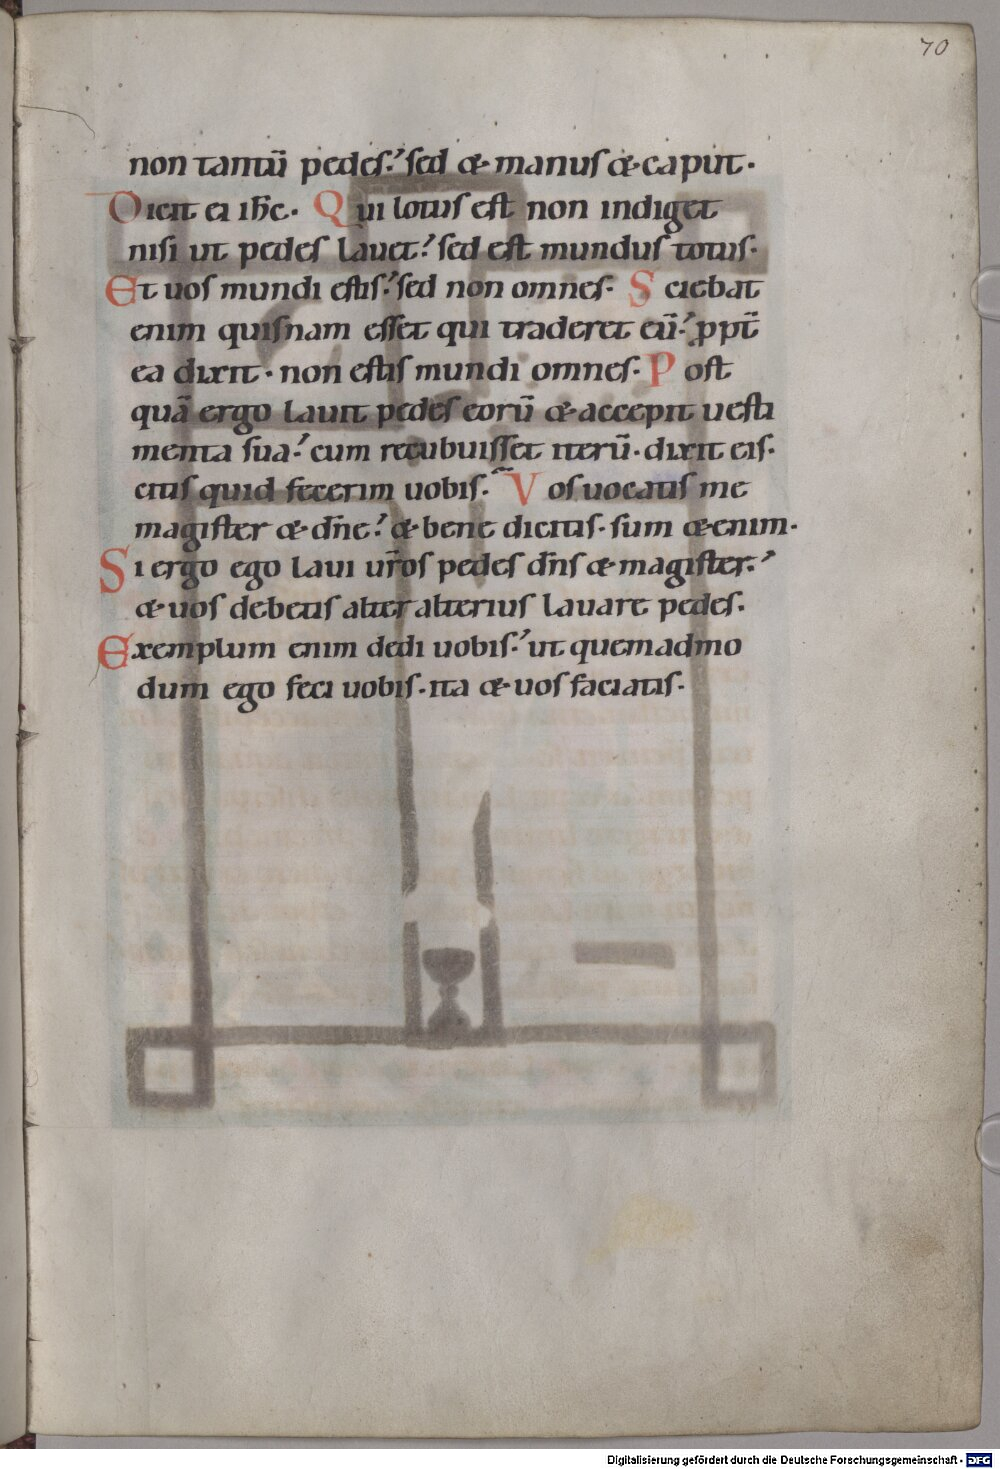 70
non tantū pedes. sed & manus & caput.
Dicit ei ih̄c. Qui lotus est non indiget
nisi ut pedes lauet. sed est mundus totus.
Et uos mundi estis. sed non omnes. Sciebat
enim quisnam esset qui traderet eū. ppt̄
ea dixit. non estis mundi omnes. Post
quā ergo lauit pedes eorū & accepit uesti
menta sua. cum recubuisset iterū. dixit eis.
citis quid fecerim uobis. Vos uocatis me
magister & dn̄e. & bene dicitis. sum & enim.
Si ergo ego laui ur̄os pedes dn̄s & magister.
& uos debetis alter alterius lauare pedes.
Exemplum enim dedi uobis. ut quemadmo
dum ego feci uobis. ita & uos faciatis.
Digitalisierung gefördert durch die Deutsche Forschungsgemeinschaft - DFG